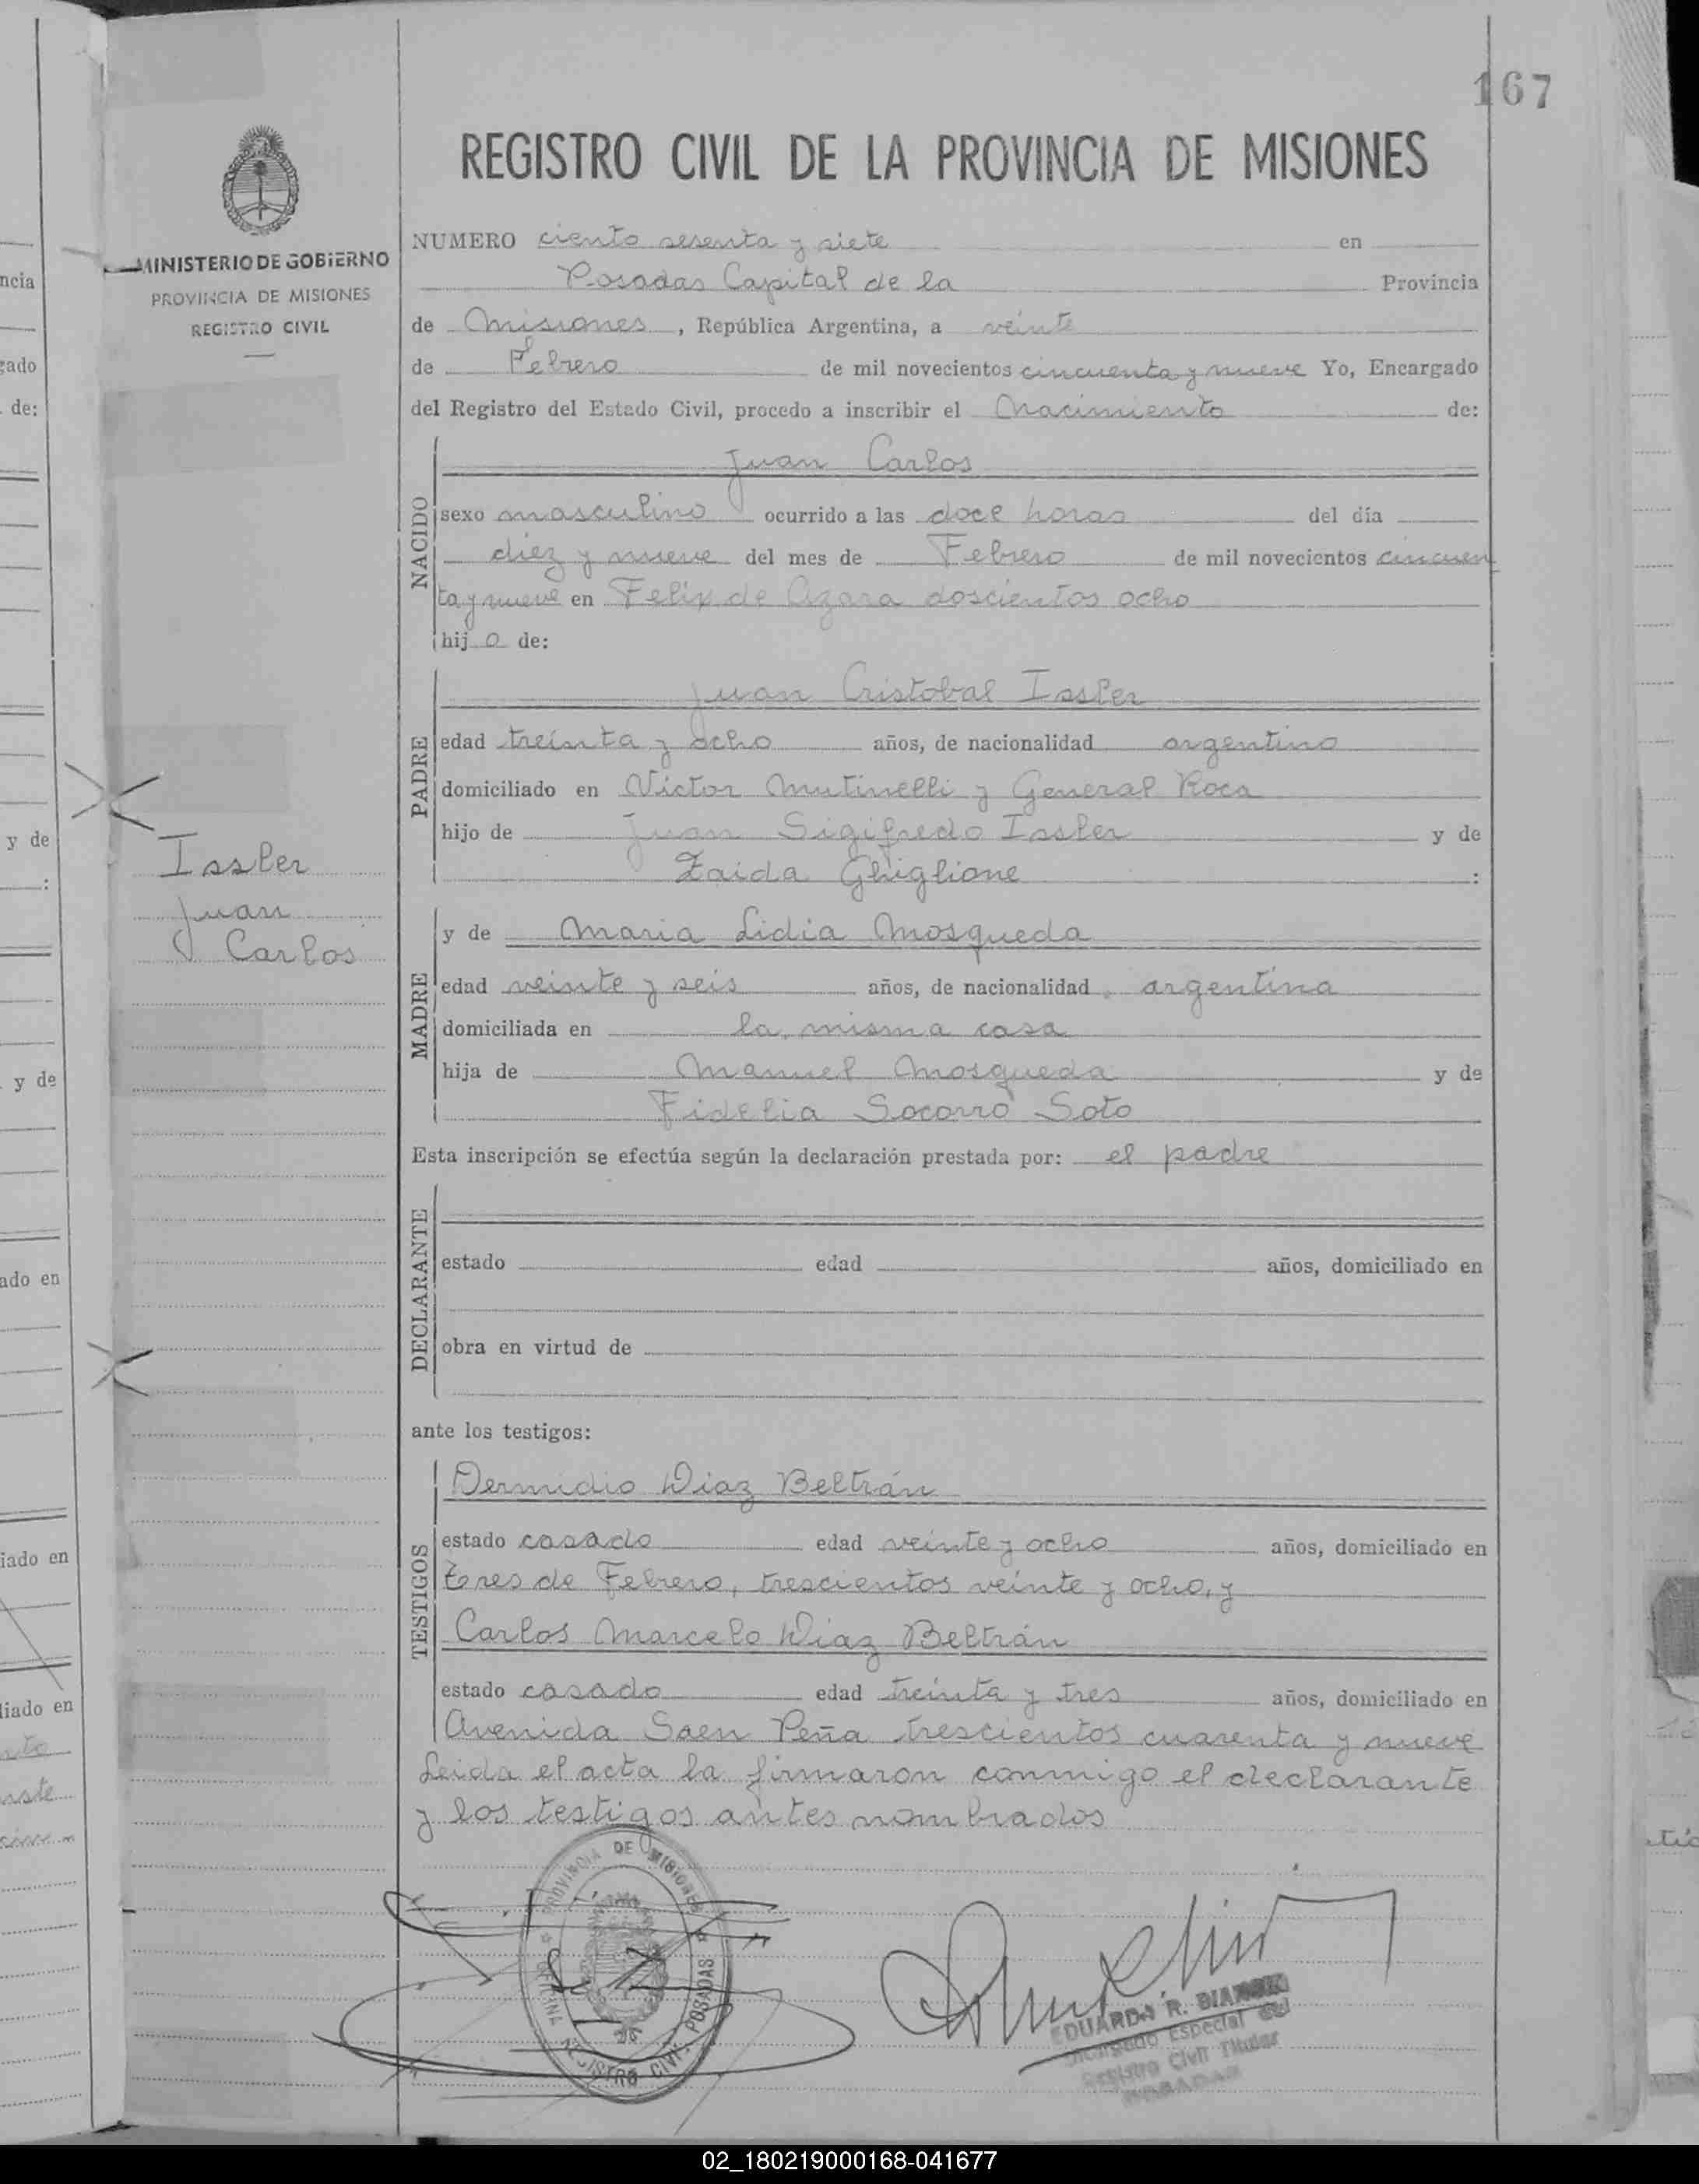 167
REGISTRO CIVIL DE LA PROVINCIA DE MISIONES
MINISTERIO DE GOBIERNO
PROVINCIA DE MISIONES
REGISTRO CIVIL
NUMERO ciento sesenta y siete en
Posadas Capital de la Provincia
de Misiones, República Argentina, a veinte
de Febrero de mil novecientos cincuenta y nueve Yo, Encargado
del Registro del Estado Civil, procedo a inscribir el Nacimiento de:
NACIDO
Juan Carlos
sexo masculino ocurrido a las doce horas del día
diez y nueve del mes de Febrero de mil novecientos cincuen
ta y nueve en Felix de Azara doscientos ocho
hijo de:
PADRE
Juan Cristobal Issler
edad treinta y ocho años, de nacionalidad argentino
domiciliado en Victor Mutinelli y General Roca
hijo de Juan Sigifredo Issler y de
Zaida Ghiglione :
Issler
Juan
Carlos
MADRE
y de Maria Lidia Mosqueda
edad veinte y seis años, de nacionalidad argentina
domiciliada en la misma casa
hija de Manuel Mosqueda y de
Fidelia Socorro Soto
Esta inscripción se efectúa según la declaración prestada por: el padre
DECLARANTE
estado edad años, domiciliado en
obra en virtud de
ante los testigos:
TESTIGOS
Dermidio Diaz Beltrán
estado casado edad veinte y ocho años, domiciliado en
tres de Febrero, trescientos veinte y ocho, y
Carlos Marcelo Diaz Beltrán
estado casado edad treinta y tres años, domiciliado en
Avenida Saen Peña trescientos cuarenta y nueve
Leida el acta la firmaron conmigo el declarante
y los testigos antes nombrados
PROVINCIA DE MISIONES
OFICINA REGISTRO CIVIL POSADAS
EDUARDA R.
Especial del
Registro Civil Titular
POSADAS
02_180219000168-041677